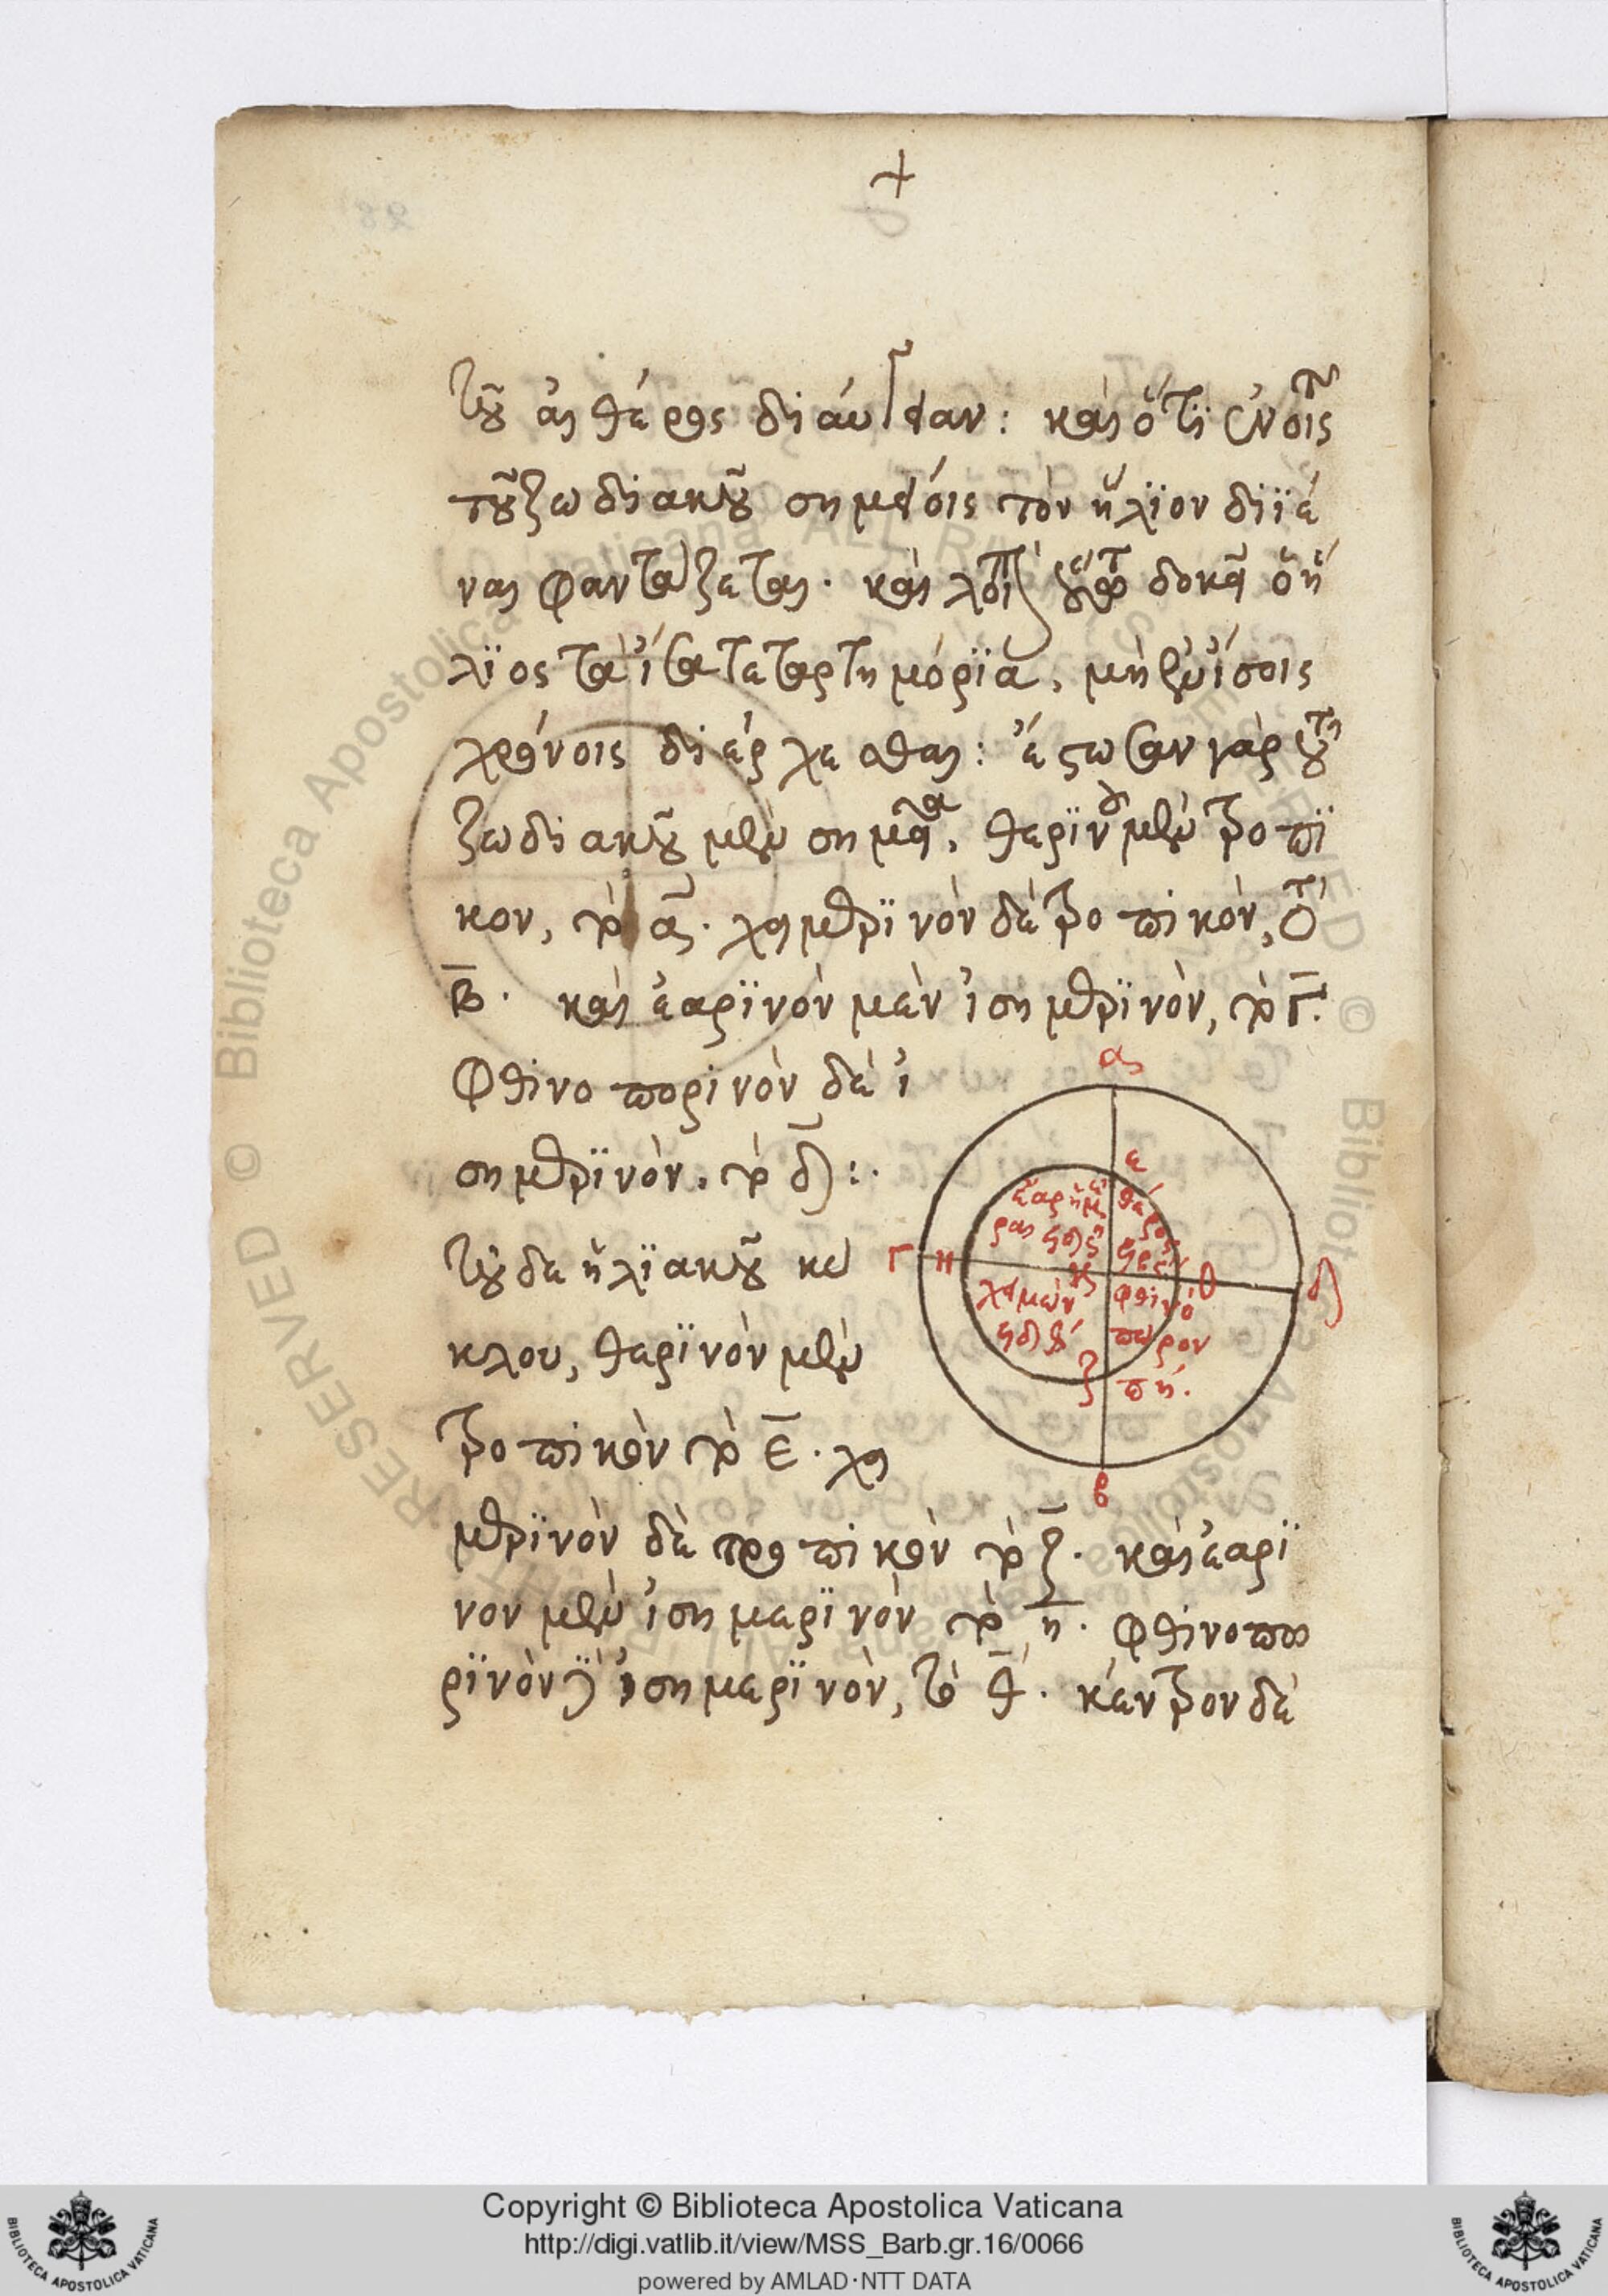 τοῦ αἰθέρος διάυγειαν: καὶ ὅτι ἐν τοῖς
τοῦ ζωδιακοῦ σημείοις τὸν ἥλϊον διϊέ
ναι φανταζεται. καὶ δοκεῖ ὁ ἥ
λϊος τὰ ἴσα τεταρτημόρϊα, μὴ ἐν ἴσοις
χρόνοις διέρχεσθαι: ἔστωσαν γὰρ τοῦ
ζωδιακοῦ μὲν σημεῖα, θερϊνὸν μὲν τροπϊ
κον, τὸ α. χειμερϊνὸν δὲ τροπικόν, τὸ
β. καὶ ἐαρϊνὸν μὲν ἰσημερϊνὸν, τὸ Γ.
Φθινοπορινὸν δὲ ἰ
σημερϊνὸν. τὸ δ:.
τοῦ δε ἡλϊακοῦ κυ
κλου, θερϊνὸν μὲν
τροπικὸν τὸ ε. χει
μερϊνὸν δὲ τροπικὸν τὸ ζ. καὶ ἐαρϊ
νον μὲν ἰσημερϊνὸν τὸ η. φθινοπω
ρϊνὸν δὲ ἰσημερϊνὸν, τὸ θ. κέντρον δὲ
α
ε
Γ
Η
κ
θ
δ
ζ
β
ἔαρ ἡμέ
ραι
θέρος
χειμὼν
φθινό
πωρον
πη.
Copyright © Biblioteca Apostolica Vaticana
http://digi.vatlib.it/view/MSS_Barb.gr.16/0066
powered by AMLAD·NTT DATA
BIBLIOTECA APOSTOLICA VATICANA
BIBLIOTECA APOSTOLICA VATICANA